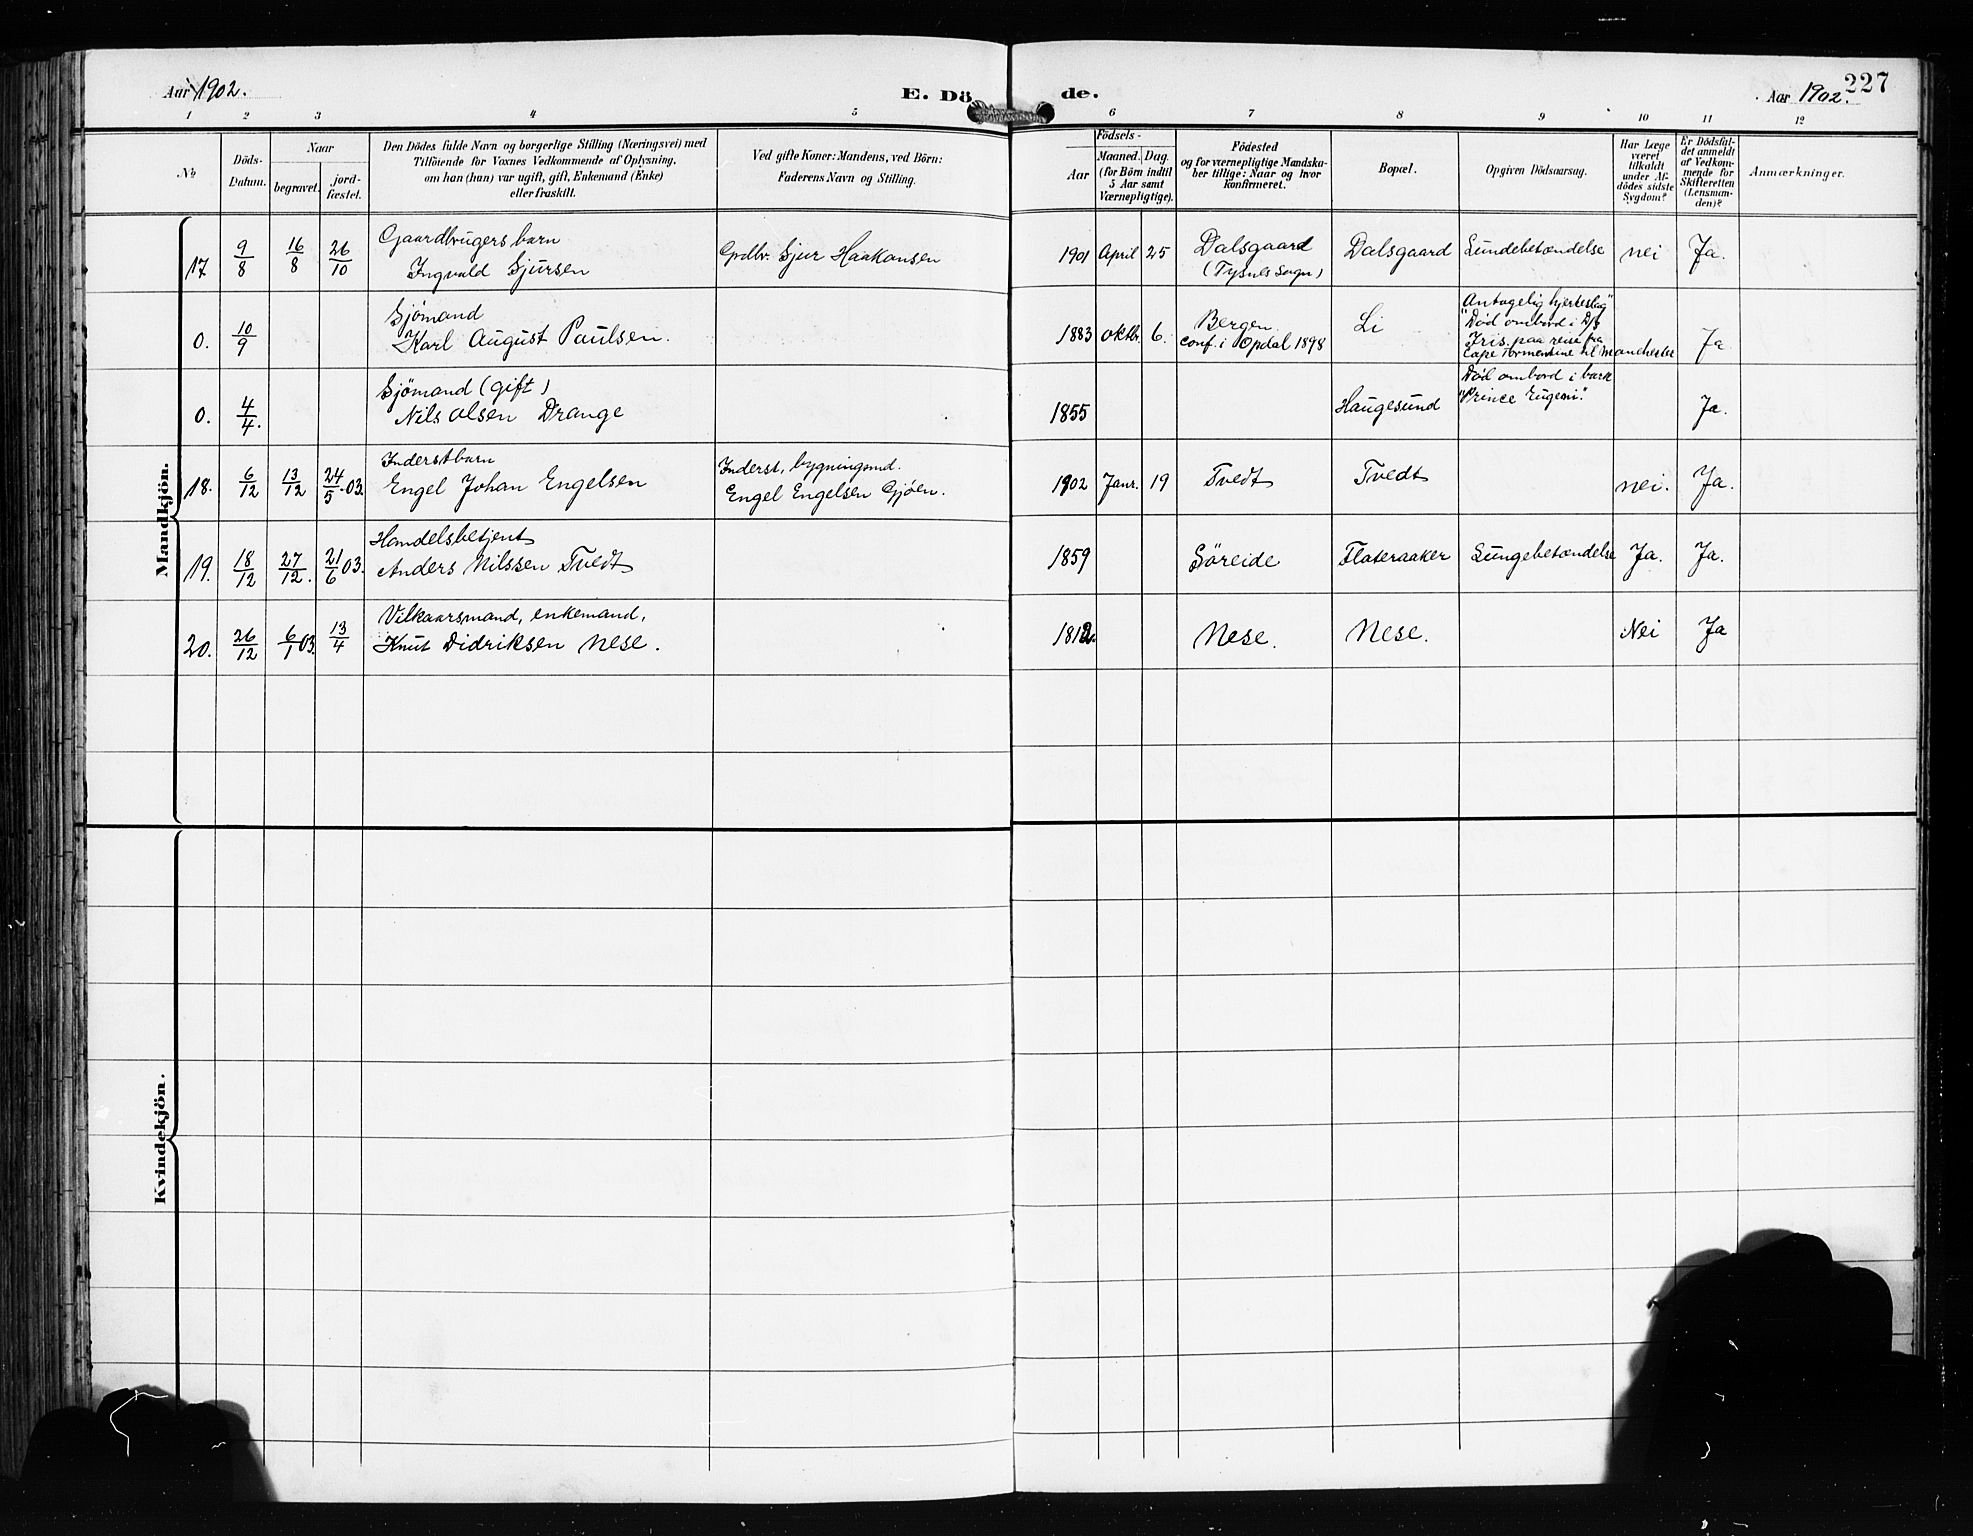 Aar 1902.
E. Dö
de.
Aar 1902.
227
1 2 3 4 5 6 7 8 9 10 11 12
No
Döds-
Datum.
Naar
begravet.
jord-
fæstet.
Den Dödes fulde Navn og borgerlige Stilling (Næringsvei) med
Tilföiende for Voxnes Vedkommende af Oplysning,
om han (hun) var ugift, gift, Enkemand (Enke)
eller fraskilt.
Ved gifte Koner: Mandens, ved Börn:
Faderens Navn og Stilling.
Födsels-
Aar
Maaned.
Dag.
(for Börn indtil
5 Aar samt
Værnepligtige).
Födested
og for værnepligtige Mandska-
ber tillige: Naar og hvor
konfirmeret.
Bopæl.
Opgiven Dödsaarsag.
Har Læge
været
tilkaldt
under Af-
dödes sidste
Sygdom?
Er Dödsfal-
det anmeldt
af Vedkom-
mende for
Skifteretten
(Lensman-
den)?
Anmærkninger.
Mandkjön.
17 9/8 16/8 26/10 Gaardbrugers barn
Ingvald Sjursen
Grdbr. Sjur Haakonsen
1901 April 25 Dalsgaard
(Tysnes Sogn)
Dalsgaard
Lundebetændelse
nei
Ja.
0. 10/9 Sjømand
Karl August Paulsen.
1883 oktbr. 6. Bergen
conf. i Opdal 1898
Li
Antagelig hjerteslag"
"Død ombord i D/S
Iris. paa reise fra
Cape Tormentine til Manchester
Ja
0. 4/4. Sjömand (gift)
Nils Olsen Drange
1855
Haugesund
Død ombord i bark
"Prince Eugen".
Ja.
18. 6/12 13/12 24/5 03. Inderstbarn
Engel Johan Engelsen
Inderst, bygningsmd.
Engel Engelsen Gjøen.
1902 Janr. 19 Tvedt
Tvedt
nei.
Ja.
19. 18/12 27/12. 21/6 03. Handelsbetjent
Anders Nilssen Tvedt
1859
Søreide
Flateraaker
Lungebetændelse
Ja.
Ja.
20. 26/12 6/1 03. 13/4 Vilkaarsmand, enkemand,
Knut Didriksen Nese.
1812.
Nese.
Nese.
Nei
Ja
Kvindekjön.